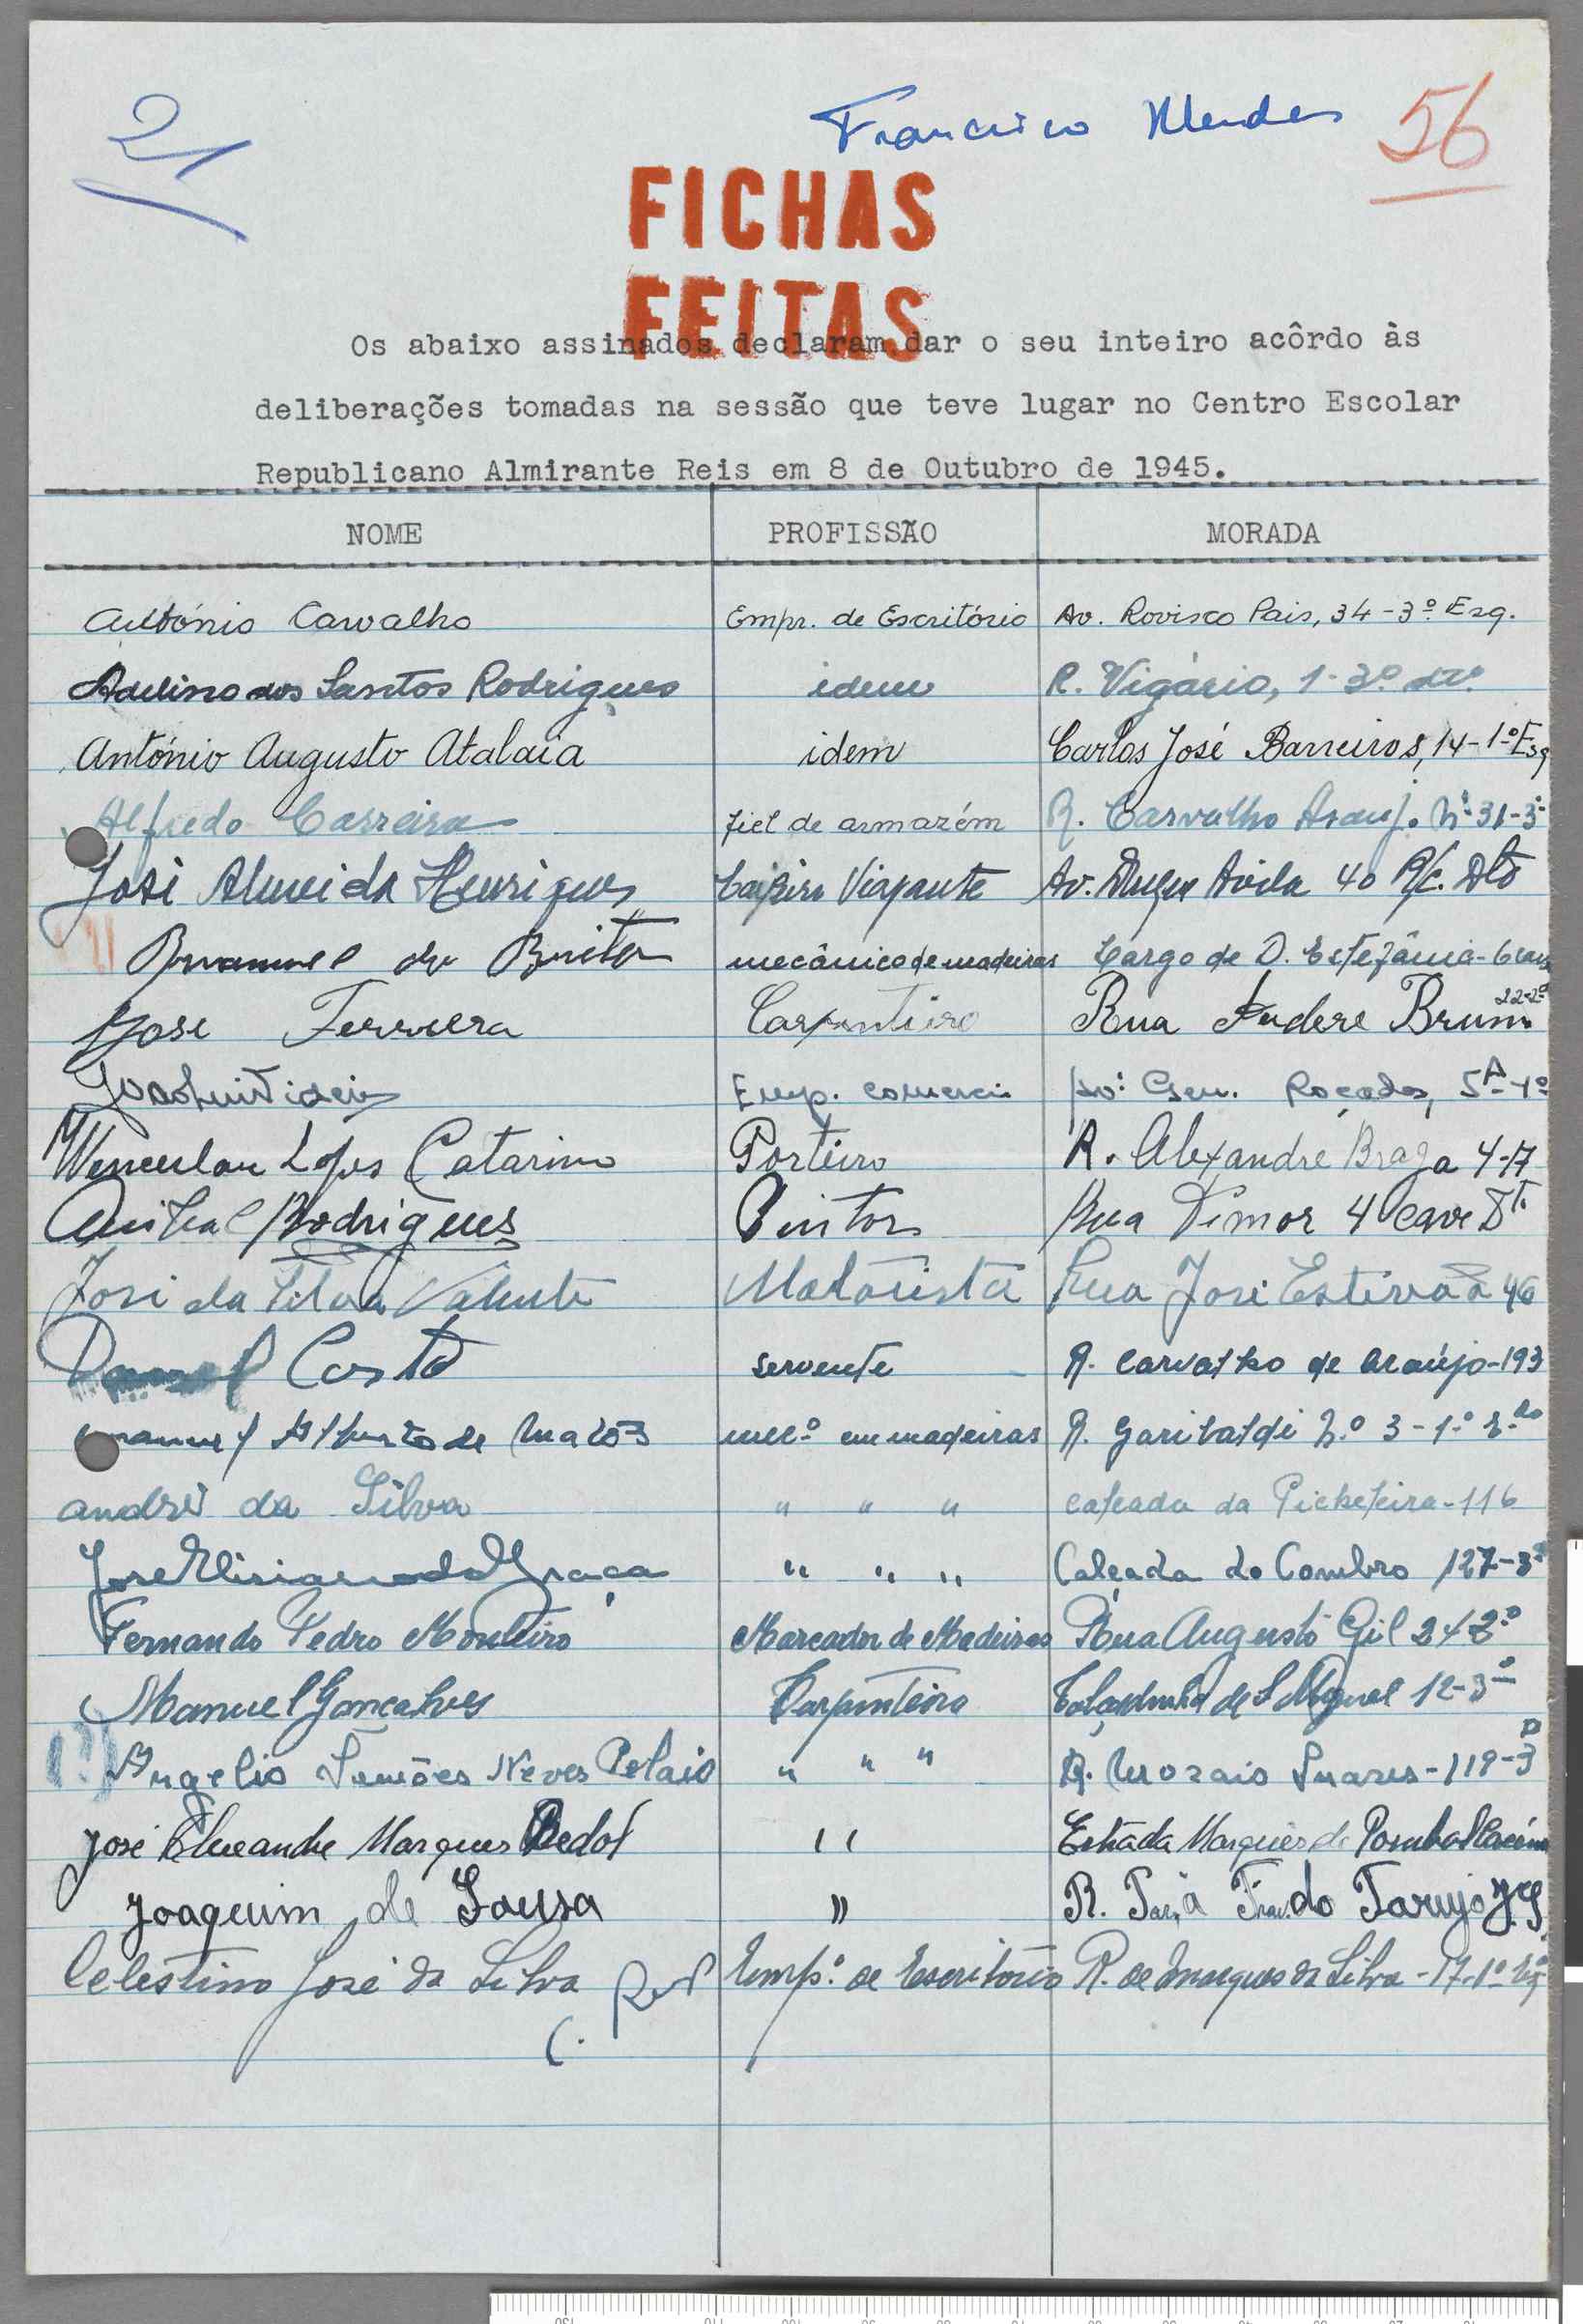 21
Francisco Mendes
56
FICHAS
FEITAS
Os abaixo assinados declaram dar o seu inteiro acôrdo às
deliberações tomadas na sessão que teve lugar no Centro Escolar
Republicano Almirante Reis em 8 de Outubro de 1945.
NOME PROFISSÃO MORADA
António Carvalho Empr. de Escritório Av. Rovisco Pais, 34-3º Esq.
Adelino dos Santos Rodrigues idem R. Vigário, 1-3º dtº
António Augusto Atalaia idem Carlos José Barreiros, 14-1º Esq
Alfredo Carreira fiel de armazém R. Carvalho Arauj. Nº 31-3º
José Almeida Henriques Caixeiro Viajante Av. Duque Avila 40 R/c. Dto
Manuel de Brito mecânico de madeiras Largo de D. Estefânia-6 cave
José Ferreira Carpinteiro Rua Brum 22-2º
Joaquim Emp. comerci Gen. Roçadas, 5A-
Wenceslau Lopes Catarino Porteiro R. Alexandre Braga 4-
Anibal Rodrigues Pintor Rua Timor 4 Cave Dt
José da Silva Valente Motorista Rua José Estevão 46
Costa servente R. Carvalho de Araújo-193
Manuel Alberto de Matos mecº em madeiras R. Garibaldi N.º 3-1.º
André da Silva " " " Calçada da Picheleira-116
José da Graça " " " Calçada do Combro 127-3º
Fernando Pedro Monteiro Marcador de Madeiras Rua Augusto Gil
Manuel Gonçalves Carpinteiro Calçadinha de S. Miguel 12-3º
Angelio Simões Neves Pelaio " " " R. Morais Soares-119-3
José Alexandre Marques " Estrada Marquês de Pombal
Joaquim de Sousa " R.
Celestino José da Silva Empº. de Escritório R. de Marques da Silva-17-1º Esq